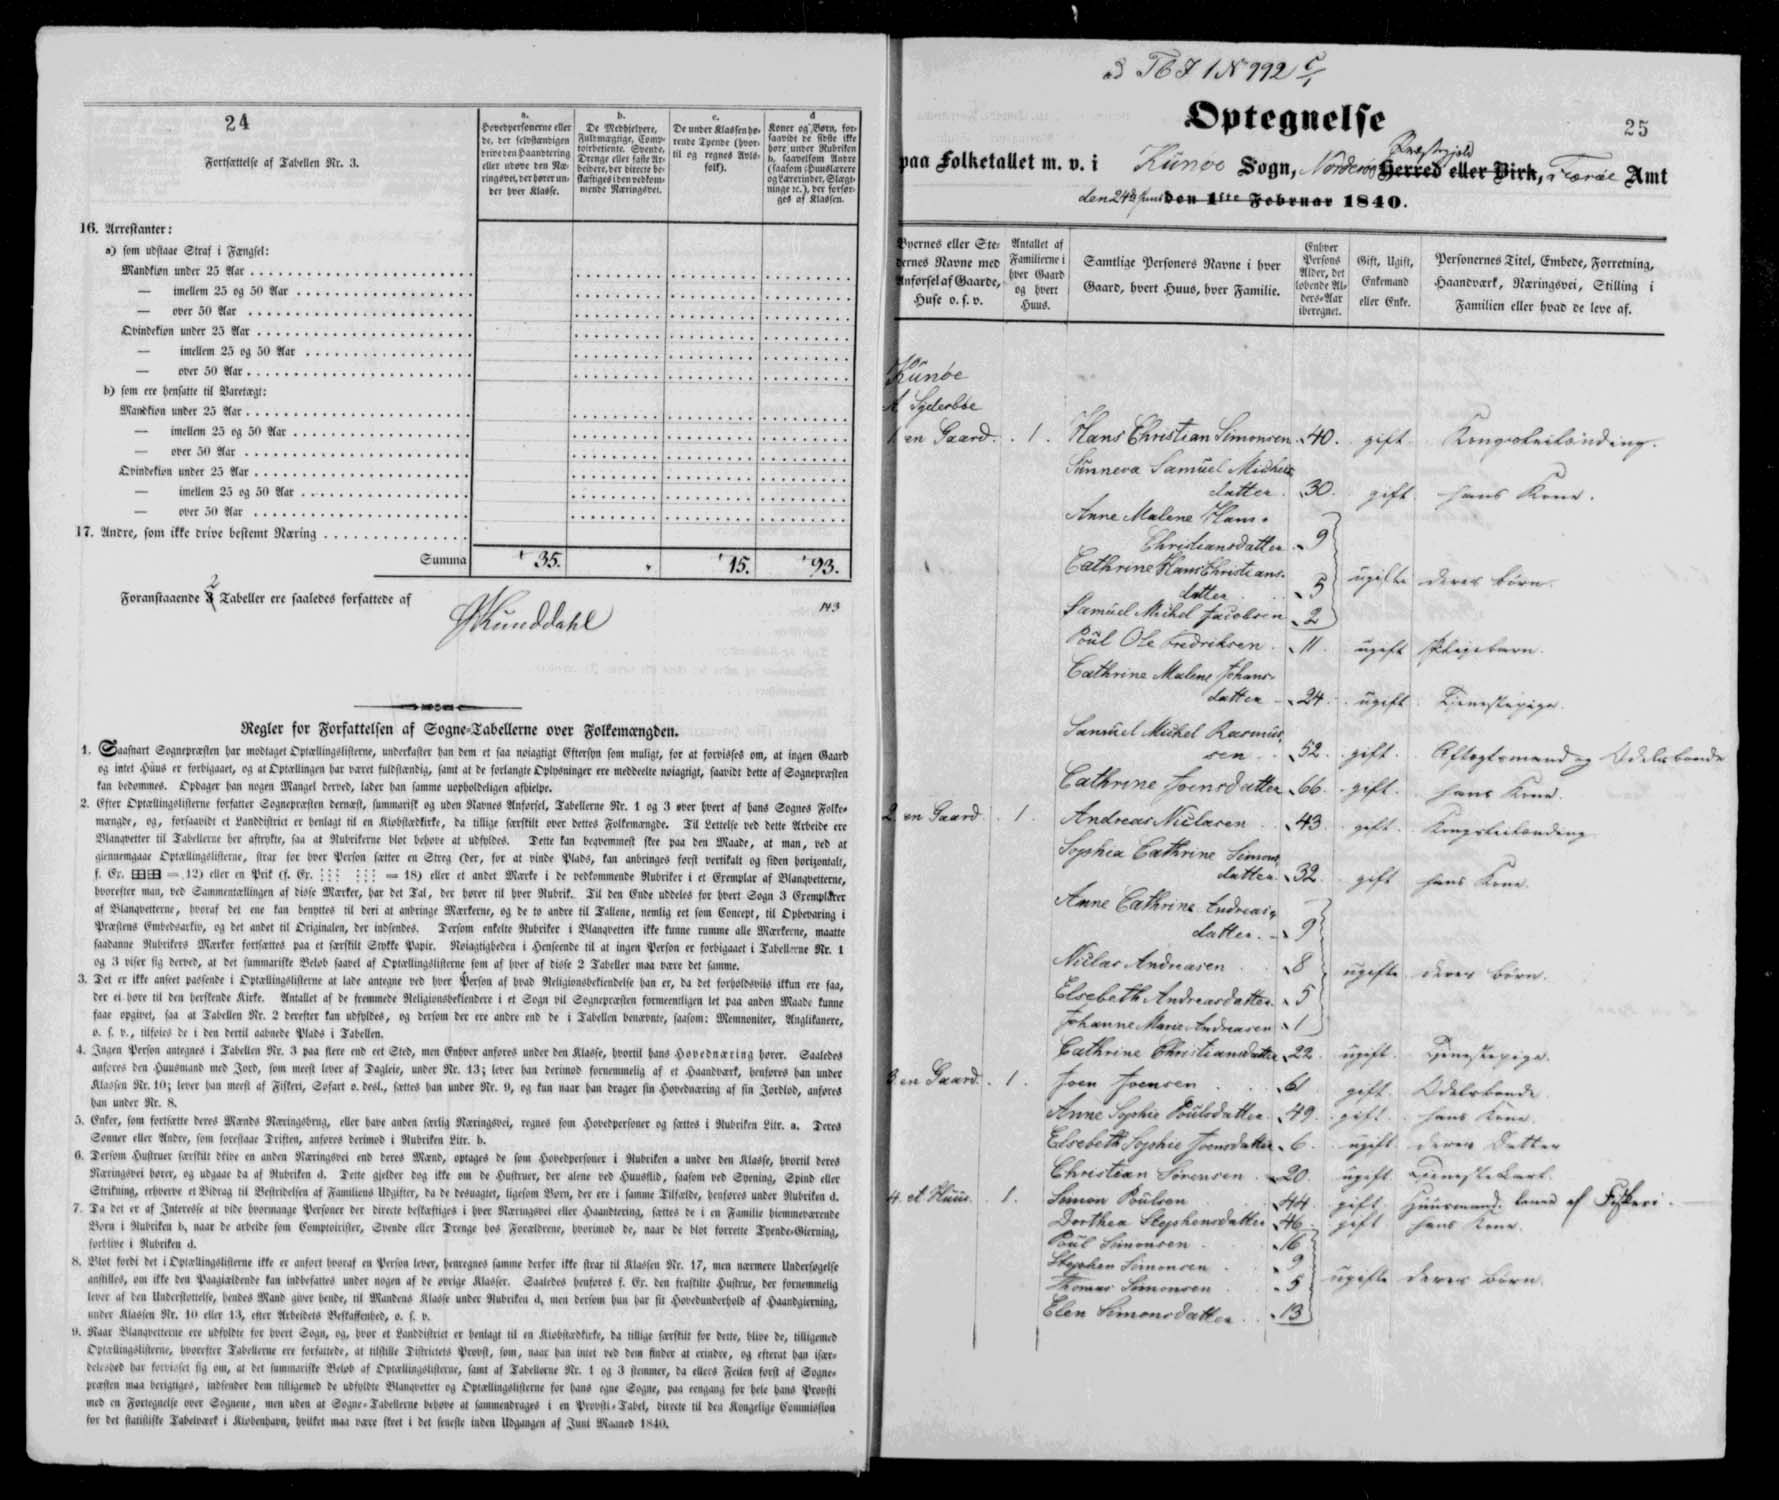 24
Fortsættelse af Tabellen Nr. 3.
a.
Hovedpersonerne eller
de, der selvstændigen
drive den Haandtering
eller udøve den Næ-
ringsvei, der hører un-
der hver Klasse.
b.
De Medhielpere,
Fuldmægtige, Comp-
toirbetiente, Svende,
Drenge eller faste Ar-
beidere, der directe be-
skæftiges i den vedkom-
mende Næringsvei.
c.
De under Klassen hø-
rende Tyende (hvor-
til og regnes Avls-
folk).
d
Koner og Børn, for-
saavidt de sidste ikke
høre under Rubriken
b, saavelsom Andre
(saasom Huuslærere
og Lærerinder, Slægt-
ninge ꝛc.), der forsør-
ges af Klassen.
16. Arrestanter:
a) som udstaae Straf i Fængsel:
Mandkiøn under 25 Aar
— imellem 25 og 50 Aar
— over 50 Aar
Qvindekiøn under 25 Aar
— imellem 25 og 50 Aar
— over 50 Aar
b) som ere hensatte til Varetægt:
Mandkiøn under 25 Aar
— imellem 25 og 50 Aar
— over 50 Aar
Qvindekiøn under 25 Aar
— imellem 25 og 50 Aar
— over 50 Aar
17. Andre, som ikke drive bestemt Næring
Summa 35. 15. 93.
143
Foranstaaende 2 Tabeller ere saaledes forfattede af
Regler for Forfattelsen af Sogne-Tabellerne over Folkemængden.
1. Saasnart Sognepræsten har modtaget Optællingslisterne, underkaster han dem et saa nøiagtigt Eftersyn som muligt, for at forvisses om, at ingen Gaard
og intet Huus er forbigaaet, og at Optællingen har været fuldstændig, samt at de forlangte Oplysninger ere meddeelte nøiagtigt, saavidt dette af Sognepræsten
kan bedømmes. Opdager han nogen Mangel derved, lader han samme uopholdeligen afhielpe.
2. Efter Optællingslisterne forfatter Sognepræsten dernæst, summarisk og uden Navnes Anførsel, Tabellerne Nr. 1 og 3 over hvert af hans Sognes Folke-
mængde, og, forsaavidt et Landdistrict er henlagt til en Kiøbstædkirke, da tillige særskilt over dettes Folkemængde. Til Lettelse ved dette Arbeide ere
Blanqvetter til Tabellerne her aftrykte, saa at Rubrikerne blot behøve at udfyldes. Dette kan beqvemmest skee paa den Maade, at man, ved at
giennemgaae Optællingslisterne, strax for hver Person sætter en Streg (der, for at vinde Plads, kan anbringes først vertikalt og siden horizontalt,
f. Ex. = 12) eller en Prik (f. Ex. = 18) eller et andet Mærke i de vedkommende Rubriker i et Exemplar af Blanqvetterne,
hvorefter man, ved Sammentællingen af disse Mærker, har det Tal, der hører til hver Rubrik. Til den Ende uddeles for hvert Sogn 3 Exemplarer
af Blanqvetterne, hvoraf det ene kan benyttes til deri at anbringe Mærkerne, og de to andre til Tallene, nemlig eet som Concept, til Opbevaring i
Præstens Embedsarkiv, og det andet til Originalen, der indsendes. Dersom enkelte Rubriker i Blanqvetten ikke kunne rumme alle Mærkerne, maatte
saadanne Rubrikers Mærker fortsættes paa et særskilt Stykke Papir. Nøiagtigheden i Henseende til at ingen Person er forbigaaet i Tabellerne Nr. 1
og 3 viser sig derved, at det summariske Beløb saavel af Optællingslisterne som af hver af disse 2 Tabeller maa være det samme.
3. Det er ikke anseet passende i Optællingslisterne at lade antegne ved hver Person af hvad Religionsbekiendelse han er, da det forholdsviis ikkun ere faa,
der ei høre til den herskende Kirke. Antallet af de fremmede Religionsbekiendere i et Sogn vil Sognepræsten formeentligen let paa anden Maade kunne
faae opgivet, saa at Tabellen Nr. 2 derefter kan udfyldes, og dersom der ere andre end de i Tabellen benævnte, saasom: Memnoniter, Anglikanere,
o. s. v., tilføies de i den dertil aabnede Plads i Tabellen.
4. Ingen Person antegnes i Tabellen Nr. 3 paa flere end eet Sted, men Enhver anføres under den Klasse, hvortil hans Hovednæring hører. Saaledes
anføres den Huusmand med Jord, som meest lever af Dagleie, under Nr. 13; lever han derimod fornemmelig af et Haandværk, henføres han under
Klassen Nr. 10; lever han meest af Fiskeri, Søfart o. desl., sættes han under Nr. 9, og kun naar han drager sin Hovednæring af sin Jordlod, anføres
han under Nr. 8.
5. Enker, som fortsætte deres Mænds Næringsbrug, eller have anden særlig Næringsvei, regnes som Hovedpersoner og sættes i Rubriken Litr. a. Deres
Sønner eller Andre, som forestaae Driften, anføres derimod i Rubriken Litr. b.
6. Dersom Hustruer særskilt drive en anden Næringsvei end deres Mænd, optages de som Hovedpersoner i Rubriken a under den Klasse, hvortil deres
Næringsvei hører, og udgaae da af Rubriken d. Dette gjelder dog ikke om de Hustruer, der alene ved Huusflid, saasom ved Spening, Spind eller
Strikning, erhverve et Bidrag til Bestridelsen af Familiens Udgifter, da de desuagtet, ligesom Børn, der ere i samme Tilfælde, henføres under Rubriken d.
7. Da det er af Interesse at vide hvormange Personer der directe beskæftiges i hver Næringsvei eller Haandtering, sættes de i en Familie hiemmeværende
Børn i Rubriken b, naar de arbeide som Comptoirister, Svende eller Drenge hos Forældrene, hvorimod de, naar de blot forrette Tyende-Gierning,
forblive i Rubriken d.
8. Blot fordi det i Optællingslisterne ikke er anført hvoraf en Person lever, henregnes samme derfor ikke strax til Klassen Nr. 17, men nærmere Undersøgelse
anstilles, om ikke den Paagiældende kan indbefattes under nogen af de øvrige Klasser. Saaledes henføres f. Ex. den fraskilte Hustrue, der fornemmelig
lever af den Understøttelse, hendes Mand giver hende, til Mandens Klasse under Rubriken d, men dersom hun har sit Hovedunderhold af Haandgierning,
under Klassen Nr. 10 eller 13, efter Arbeidets Beskaffenhed, o. s. v.
9. Naar Blanqvetterne ere udfyldte for hvert Sogn, og, hvor et Landdistrict er henlagt til en Kiøbstædkirke, da tillige særskilt for dette, blive de, tilligemed
Optællingslisterne, hvorefter Tabellerne ere forfattede, at tilstille Districtets Provst, som, naar han intet ved dem finder at erindre, og efterat han især-
deleshed har forvisset sig om, at det summariske Beløb af Optællingslisterne, samt af Tabellerne Nr. 1 og 3 stemmer, da ellers Feilen først af Sogne-
præsten maa berigtiges, indsender dem tilligemed de udfyldte Blanqvetter og Optællingslisterne for hans egne Sogne, paa eengang for hele hans Provsti
med en Fortegnelse over Sognene, men uden at Sogne-Tabellerne behøve at sammendrages i en Provsti-Tabel, directe til den Kongelige Commission
for det statistiske Tabelværk i Kiøbenhavn, hvilket maa være skeet i det seneste inden Udgangen af Juni Maaned 1840.
25
Optegnelse
paa Folketallet m. v. i Kunøe Sogn, Norderøe Præstegield Herred eller Birk, Færøe Amt
den 24de Juni den 1ste Februar 1840.
Byernes eller Ste-
dernes Navne med
Anførsel af Gaarde,
Huse o. s. v.
Antallet af
Familierne i
hver Gaard
og hvert
Huus.
Samtlige Personers Navne i hver
Gaard, hvert Huus, hver Familie.
Enhver
Persons
Alder, det
løbende Al-
ders-Aar
iberegnet.
Gift, Ugift,
Enkemand
eller Enke.
Personernes Titel, Embede, Forretning,
Haandværk, Næringsvei, Stilling i
Familien eller hvad de leve af.
Kunøe
1 en Gaard. 1. Hans Christian Simonsen 40. gift
Sunneva Samuel Michels
datter. 30. gift hans Kone.
Anne Malene Hans
Christiansdatter 9
Cathrine Hans Christians
datter 5 ugifte deres børn.
Samuel Michel Jacobsen 2
Poul Ole Fredriksen 11. ugift Pleiebarn.
Cathrine Malene Johans
datter 24 ugift Tjenestepige.
Samuel Michel Rasmus
sen 52. gift. Aftægtsmand og Odelsbonde
Cathrine Joensdatter 66. gift. hans Kone.
2. en Gaard 1. Andreas Niclasen 43. gift
Sophia Cathrine Simons
datter 32. gift hans Kone.
Anne Cathrine Andreas
datter. 9
Niclas Andreasen 8 ugifte deres børn.
Elsebeth Andreasdatter 5
Johanne Marie Andreasen 1
Cathrine Christiansdatter 22. ugift. Tjenestepige.
3. en Gaard. 1. Joen Joensen 61 gift. Odelsbonde
Anne Sophie Poulsdatter 49. gift. hans Kone.
Elsebeth Sophie Joensdatter 6. ugift deres Datter
Christian Sørensen 20. ugift Tjenestekarl.
4. et Huus. 1. Simon Poulsen 44 gift. Huusmand. lever af Fiskeri.
Dorthea Stephensdatter 46. gift hans Kone.
Poul Simonsen 16
Stephen Simonsen 9
Thomas Simonsen 5 ugifte deres børn.
Elen Simonsdatter 13